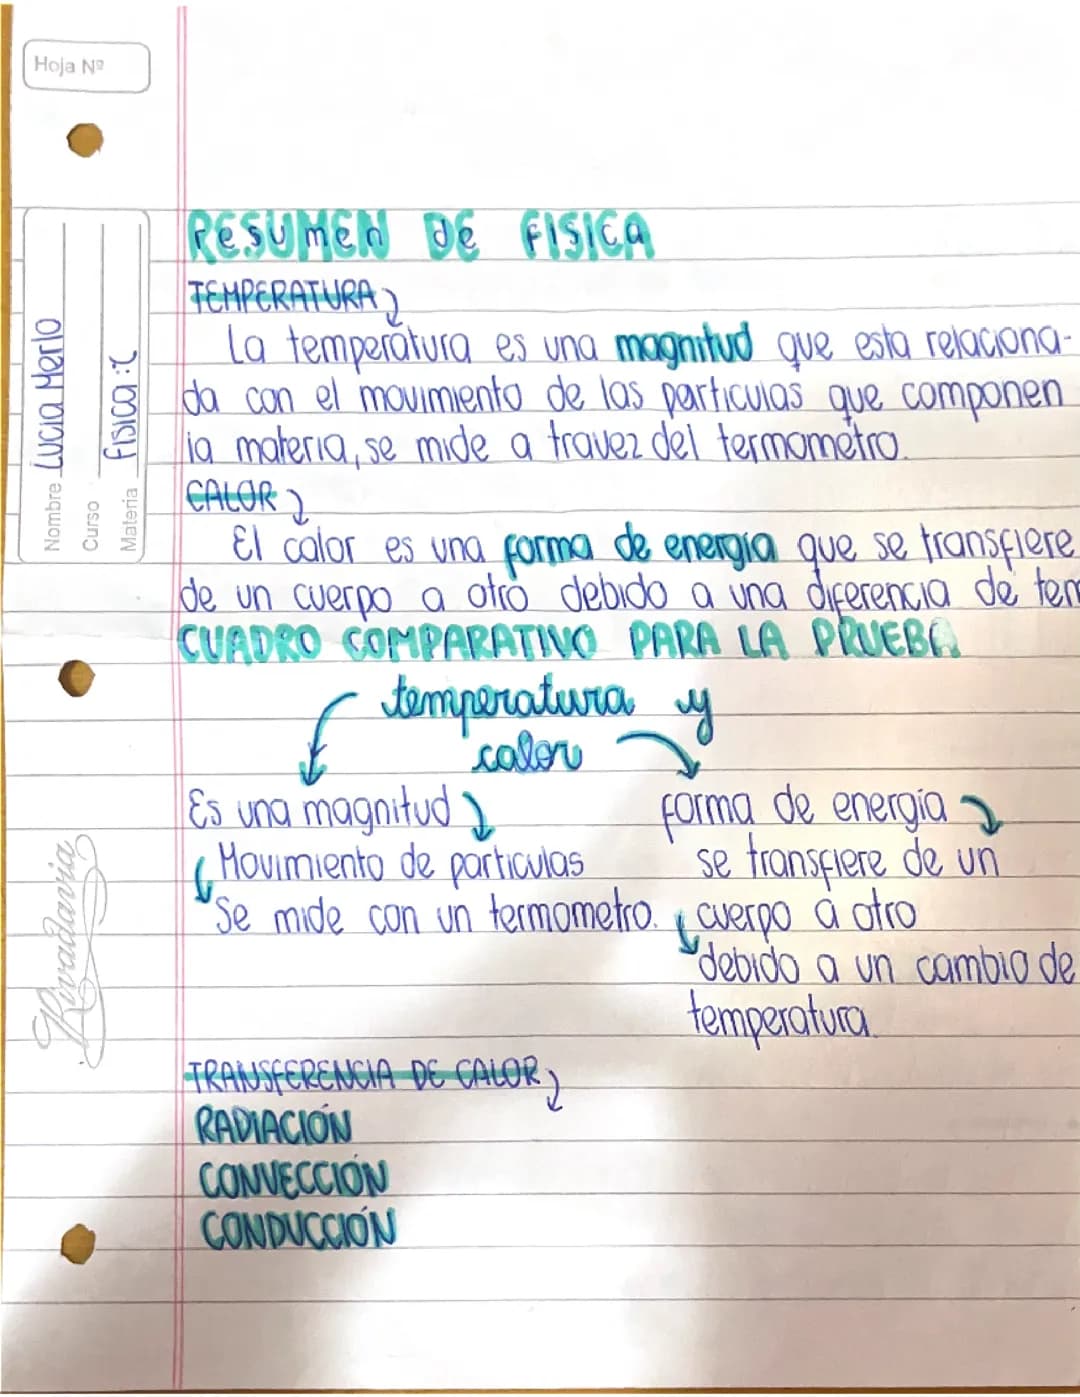 Hoja Nº
Nombre Lucia Merlo
Curso
Materia Fisica :(
Rivadavia
RESUMEN DE FISICA
TEMPERATURA
La temperatura es una magnitud que esta relaciona-
da con el movimiento de las particulas que componen
la materia, se mide a travez del termometro.
CALOR
El calor es una forma de energía que se transfiere
de un cuerpo a otro debido a una diferencia de tem
CUADRO COMPARATIVO PARA LA PRUEBA
temperatura y
calor
Es una magnitud
Movimiento de particulas
Se mide con un termometro.
forma de energía
se transfiere de un
cuerpo a otro
debido a un cambio de
temperatura.
TRANSFERENCIA DE CALOR
RADIACIÓN
CONVECCIÓN
CONDUCCIÓN